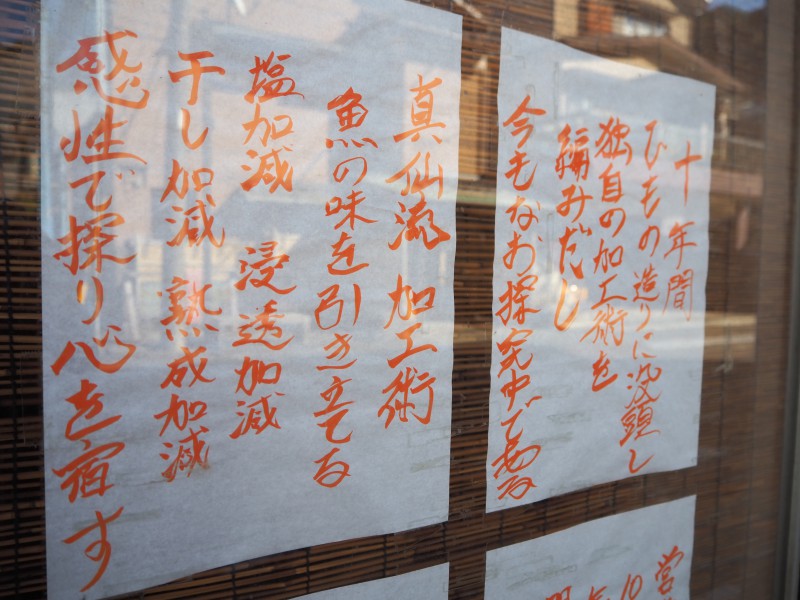 十年間
ひもの造りに没頭し
独自の加工術を
編みだし
今もなお探究中である
真仙流 加工術
魚の味を引き立てる
塩加減 浸透加減
干し加減 熟成加減
感性で探り心を宿す
営
10